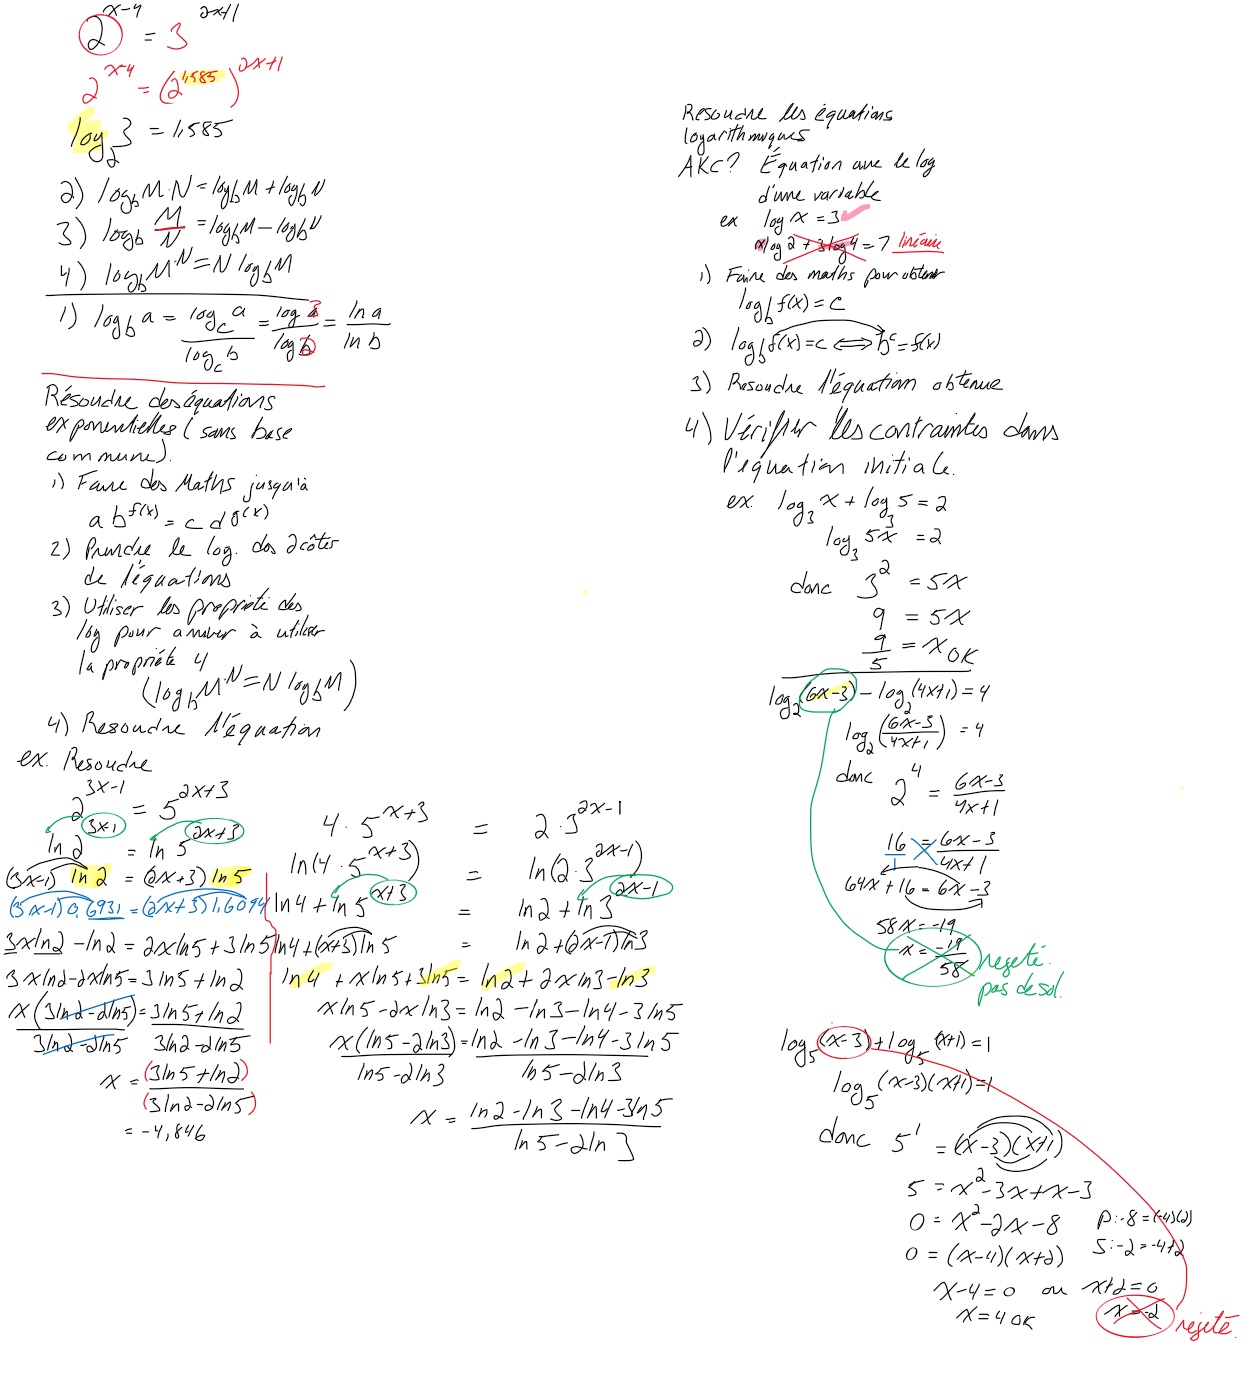 2^(x-4) = 3^(2x+1)
2^(x-4) = (2^1,585)^(2x+1)
log₂3 = 1,585
2) log_b M·N = log_b M + log_b N
3) log_b M/N = log_b M - log_b N
4) log_b M^N = N log_b M
1) log_b a = log_c a / log_c b = log a / log b = ln a / ln b
Résoudre des équations
exponentielles (sans base
commune).
1) Faire des Maths jusqu'à
a b^f(x) = c d^g(x)
2) Prendre le log. des 2 côtés
de l'équations
3) Utiliser les propriété des
log pour arriver à utiliser
la propriété 4
(log_b M^N = N log_b M)
4) Resoudre l'équation
ex. Resoudre
2^(3x-1) = 5^(2x+3)
ln 2^(3x-1) = ln 5^(2x+3)
(3x-1) ln 2 = (2x+3) ln 5
(3x-1) 0,6931 = (2x+3) 1,6094
3x ln2 - ln2 = 2x ln5 + 3 ln5
3x ln2 - 2x ln5 = 3 ln5 + ln2
x(3 ln2 - 2 ln5) / (3 ln2 - 2 ln5) = (3 ln5 + ln2) / (3 ln2 - 2 ln5)
x = (3 ln5 + ln2) / (3 ln2 - 2 ln5)
= -4,846
4·5^(x+3) = 2·3^(2x-1)
ln(4·5^(x+3)) = ln(2·3^(2x-1))
ln4 + ln5^(x+3) = ln2 + ln3^(2x-1)
ln4 + (x+3) ln5 = ln2 + (2x-1) ln3
ln4 + x ln5 + 3 ln5 = ln2 + 2x ln3 - ln3
x ln5 - 2x ln3 = ln2 - ln3 - ln4 - 3 ln5
x(ln5 - 2 ln3) / (ln5 - 2 ln3) = (ln2 - ln3 - ln4 - 3 ln5) / (ln5 - 2 ln3)
x = (ln2 - ln3 - ln4 - 3 ln5) / (ln5 - 2 ln3)
Resoudre les équations
logarithmiques
AKC? Équation avec le log
d'une variable
ex log x = 3 ✓
x log 2 + 3 log 4 = 7 linéaire
1) Faire des maths pour obtenir
log_b f(x) = c
2) log_b f(x) = c ⟺ b^c = f(x)
3) Resoudre l'équation obtenue
4) Vérifier les contraintes dans
l'équation initiale.
ex. log₃ x + log₃ 5 = 2
log₃ 5x = 2
donc 3² = 5x
9 = 5x
9/5 = x OK
log₂(6x-3) - log₂(4x+1) = 4
log₂((6x-3)/(4x+1)) = 4
donc 2⁴ = (6x-3)/(4x+1)
16/1 = (6x-3)/(4x+1)
64x + 16 = 6x - 3
58x = -19
x = -19/58 rejeté.
pas de sol.
log₅(x-3) + log₅(x+1) = 1
log₅(x-3)(x+1) = 1
donc 5¹ = (x-3)(x+1)
5 = x² - 3x + x - 3
0 = x² - 2x - 8 P: -8 = (-4)(2)
0 = (x-4)(x+2) S: -2 = -4+2
x-4 = 0 ou x+2 = 0
x = 4 OK x = -2 rejeté.